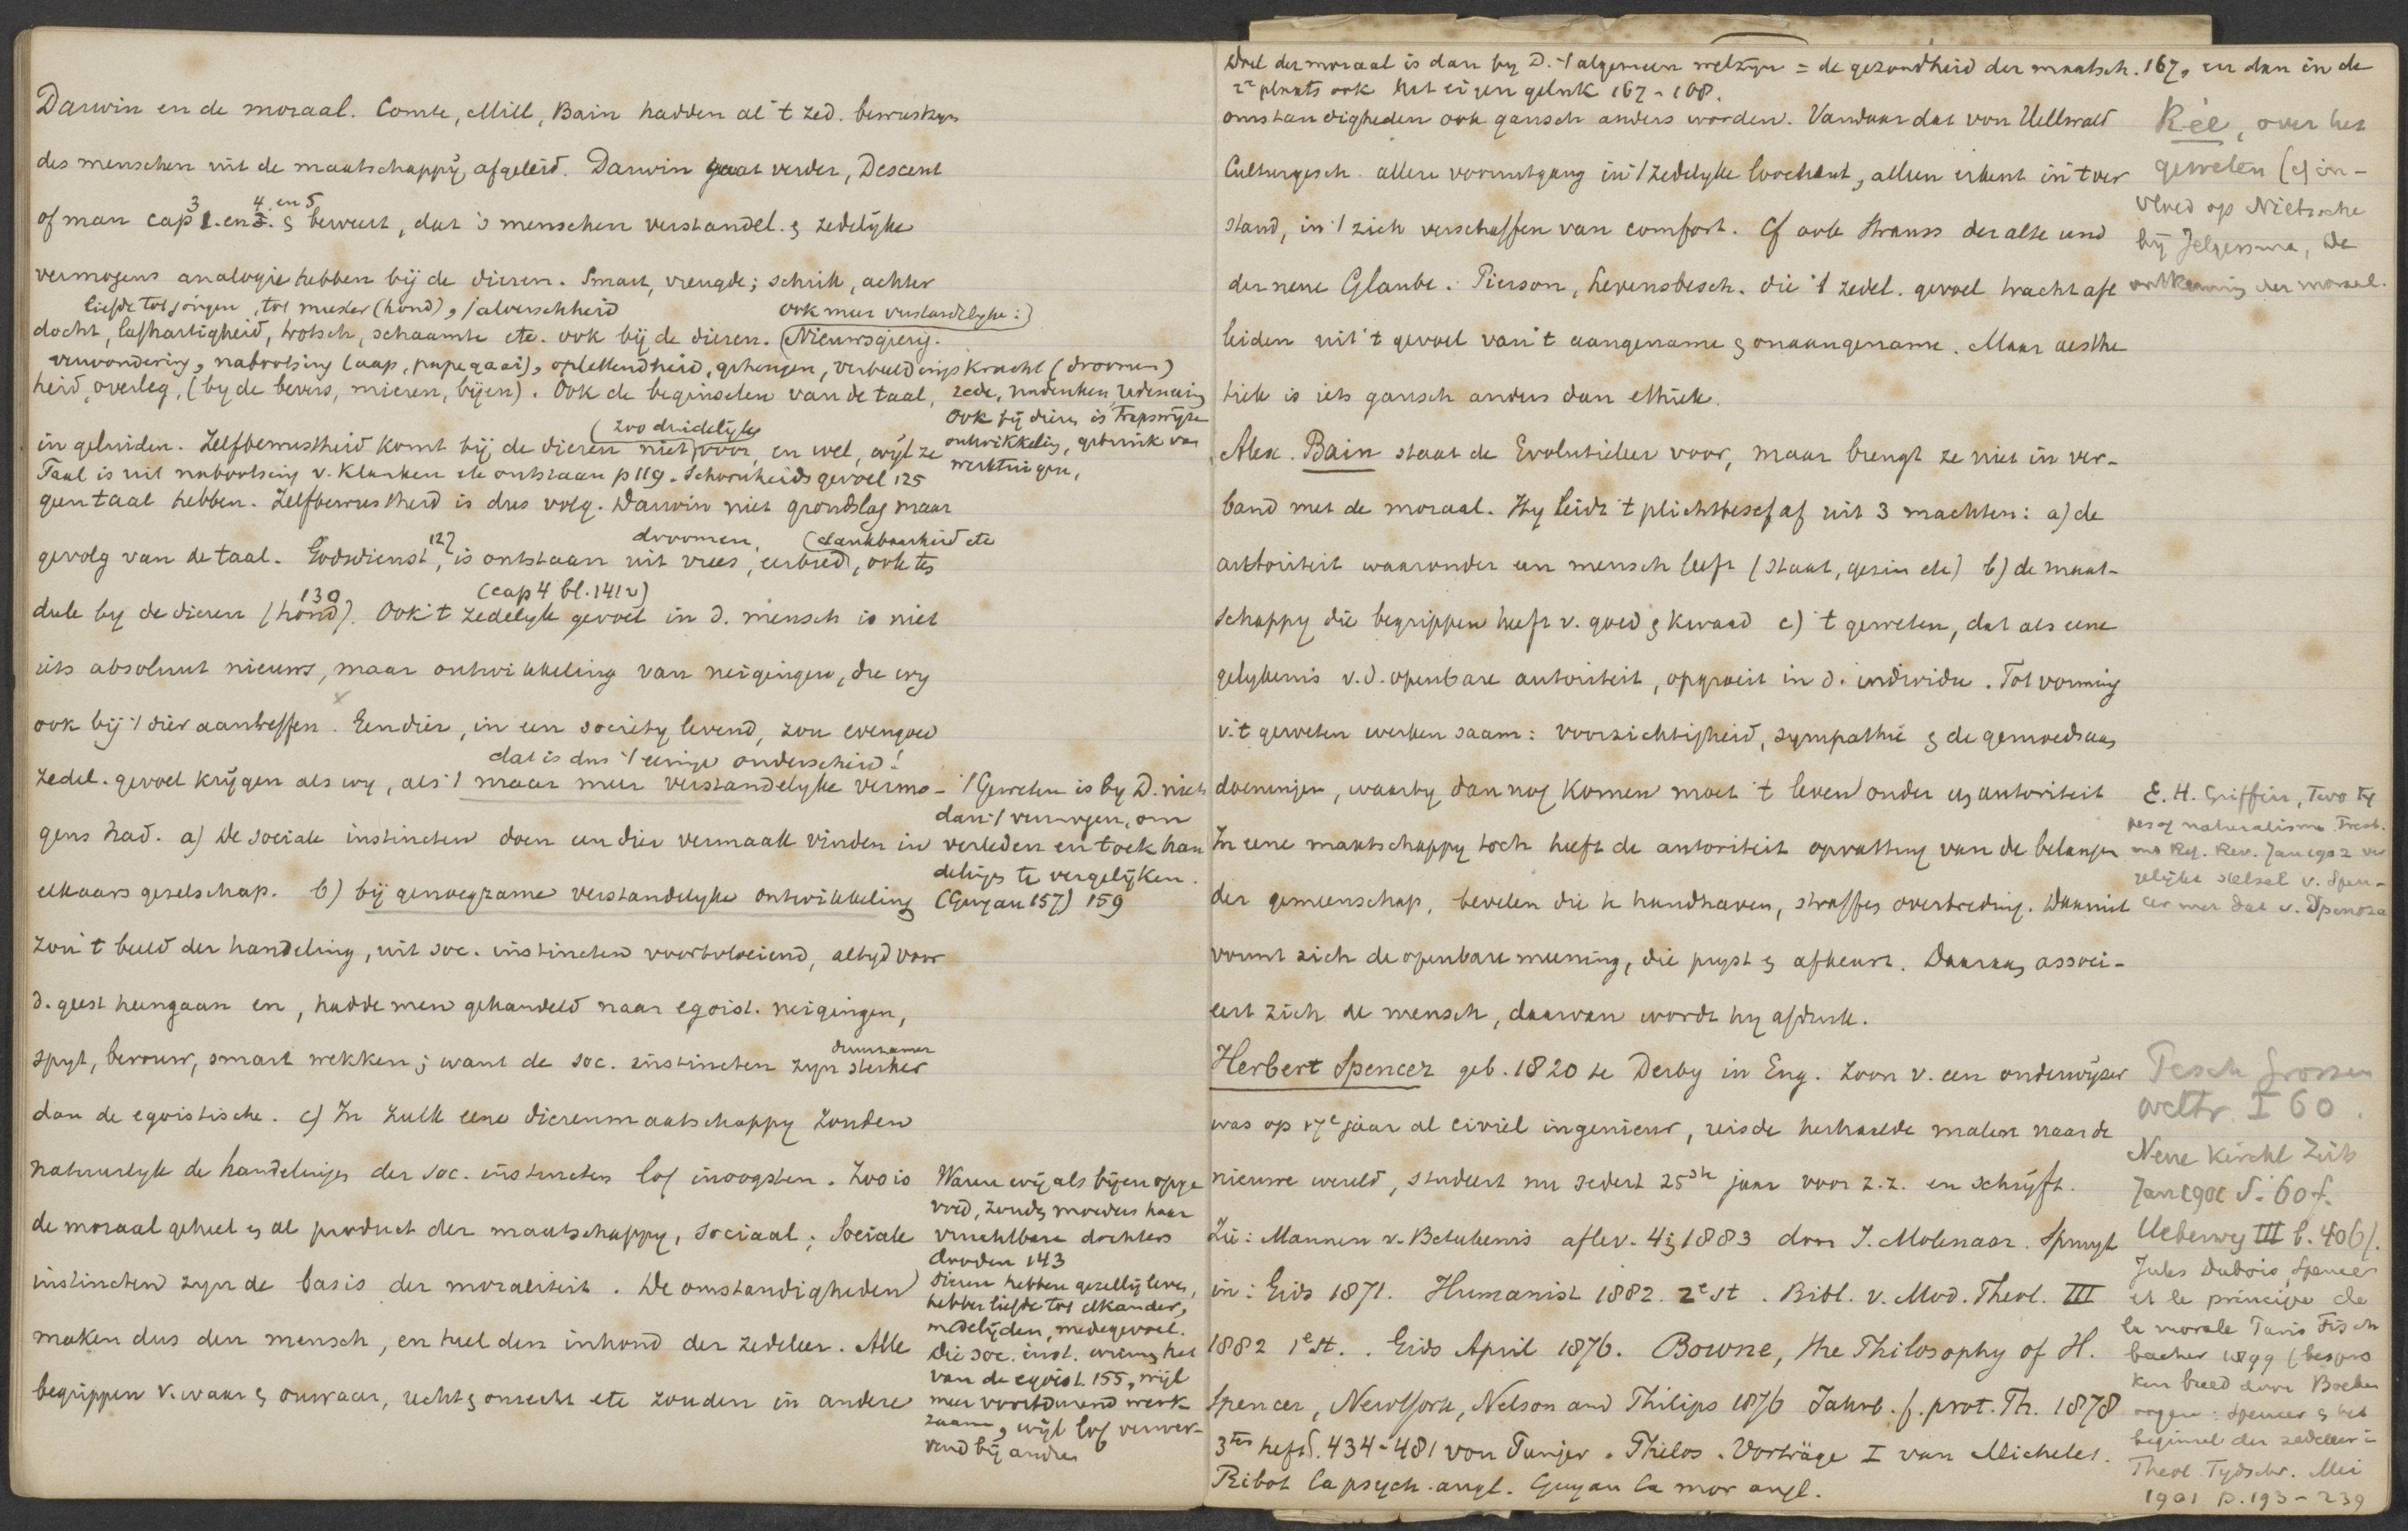 Darwin en de moraal. Comte, Mill, Bain hadden al 't zed. bewustzyn
des menschen uit de maatschappij afgeleid. Darwin gaat verder, Descent
3 4 en 5
of man cap 1. en 2. & beweert, dat 's menschen verstandel. & zedelijke
vermogens analogie hebben bij de dieren. Smart, vreugde; schrik, achter
liefde tot jongen, tot meester (hond), jalouschheid ook meer verstandelyke:
docht, lafhartigheid, trotsch, schaamte etc. ook bij de dieren. Nieuwsgierig-
verwondering, nabootsing (aap, papegaai), oplettendheid, geheugen, verbeeldingskracht (droomen)
heid, overleg, (by de bevers, mieren, bijen). Ook de beginselen van de taal, rede, nadenken, redeneering
Ook bij dieren is trapswijze
ontwikkeling, gebruik van
werktuigen,
(zoo duidelijke
in geluiden. Zelfbewustheid komt bij de dieren niet) voor, en wel, wijl ze
Taal is uit nabootsing v. klanken etc ontstaan p 119. Schoonheidsgevoel 125
geen taal hebben. Zelfbewustheid is dus volg. Darwin niet grondslag maar
127 droomen, (dankbaarheid etc
gevolg van de taal. Godsdienst, is ontstaan uit vrees, eerbied, ook ten
130 (cap 4 bl. 141 v)
deele by de dieren (hond). Ook 't zedelyk gevoel in d. mensch is niet
iets absoluut nieuws, maar ontwikkeling van neigingen, die wy
ook bij 't dier aantreffen. Een dier, in een society levend, zou evengoed
dat is dus 't eenige onderscheid!
zedel. gevoel krijgen als wy, als 't maar meer verstandelyke vermo-
gens had. a) de sociale instincten doen een dier vermaak vinden in
elkaars gezelschap. b) bij genoegzame verstandelyke ontwikkeling
zou 't beeld der handeling, uit soc. instincten voortvloeiend, altyd voor
d. geest heengaan en, hadde men gehandeld naar egoist. neigingen,
duurzamer
spyt, berouw, smart wekken; want de soc. instincten zyn sterker
dan de egoistische. c) In zulk eene dierenmaatschappy zouden
natuurlyk de handelingen der soc. instincten lof inoogsten. Zoo is
de moraal geheel en al product der maatschappy, sociaal; sociale
instincten zyn de basis der moraliteit. De omstandigheden
maken dus den mensch, en heel den inhoud der zedeleer. Alle
begrippen v. waar & onwaar, recht & onrecht etc zouden in andere
't Geweten is by D. niets
dan 't vermogen, om
verleden en toek han
delingen te vergelijken.
(Guyau 157) 159
Waren wij als bijen opge
voed, zouden moeders haar
vruchtbare dochters
dooden 143
Dieren hebben gezellig leven,
hebben liefde tot elkander,
medelijden, medegevoel.
Die soc. inst. winnen het
van de egoist. 155, wijl
meer voortdurend werk
zaam, wijl lof verwer-
vend bij andren
Doel der moraal is dan by D. 't algemeen welzyn = de gezondheid der maatsch. 167, en dan in de
2e plaats ook het eigen geluk 167-168.
omstandigheden ook gansch anders worden. Vandaar dat von Hellwald
Culturgesch. allen vooruitgang in 't zedelyke loochent, alleen erkent in 't ver
stand, in 't zich verschaffen van comfort. Cf ook Strauss der alte und
der neue Glaube. Pierson, Levensbesch. die 't zedel. gevoel tracht af te
leiden uit 't gevoel van 't aangename & onaangename. Maar aesthe
tiek is iets gansch anders dan ethiek.
Alex. Bain staat de Evolutieleer voor, maar brengt ze niet in ver-
band met de moraal. Hy leidt 't plichtbesef af uit 3 machten: a) de
autoriteit waaronder een mensch leeft (staat, gezin etc) b) de maat-
schappy die begrippen heeft v. goed & kwaad c) 't geweten, dat als eene
gelykenis v. d. openbare autoriteit, opgroeit in d. individu. Tot vorming
v. 't geweten werken saam: voorzichtigheid, sympathie & de gemoedsaan
doeningen, waarby dan nog komen moet 't leven onder en autoriteit
In eene maatschappy toch heeft de autoriteit opvatting van de belangen
der gemeenschap, bevelen die te handhaven, straffen overtreding. Daaruit
vormt zich de openbare meening, die pryst & afkeurt. Daaraan associ-
eert zich de mensch, daarvan wordt hy afdruk.
Herbert Spencer geb. 1820 te Derby in Eng. Zoon v. een onderwijzer
was op 17e jaar al civiel ingenieur, reisde herhaalde malen naar de
nieuwe wereld, studeert nu sedert 25ste jaar voor z.z. en schrijft.
Zie: Mannen v. Beteekenis aflev. 4 & 1883 door J. Molenaar. Spruyt
in: Gids 1871. Humanist 1882. 2e st. Bibl. v. Mod. Theol. III
1882 1e st. Gids April 1876. Bowne, the Philosophy of H.
Spencer, NewYork, Nelson and Philips 1876 Jahrb. f. prot. Th. 1878
3tes heft S. 434-481 von Punjer. Philos. Vorträge I van Michelet.
Ribot la psych. angl. Guyau la mor angl.
Rée, over het
geweten (& in-
vloed op Nietzsche
bij Jelgersma, de
ontkenning der moraal.
E. H. Griffin, Two ty
pes of naturalism. Presb.
and Ref. Rev. Jan 1902 ver
gelijkt stelsel v. Spen-
cer met dat v. Spinoza
Pesch Grossen
weltr. I 60.
Neue Kirchl Zeits
Jan S. 60 f.
Ueberweg III b. 406/.
Jules Dubois, Spencer
et le principe de
la morale Paris Fisch
bacher 1899 (bespro
ken breed door
Spencer & het
beginsel der zedeleer in
Theol. Tydschr. Mei
1901 p. 193-239